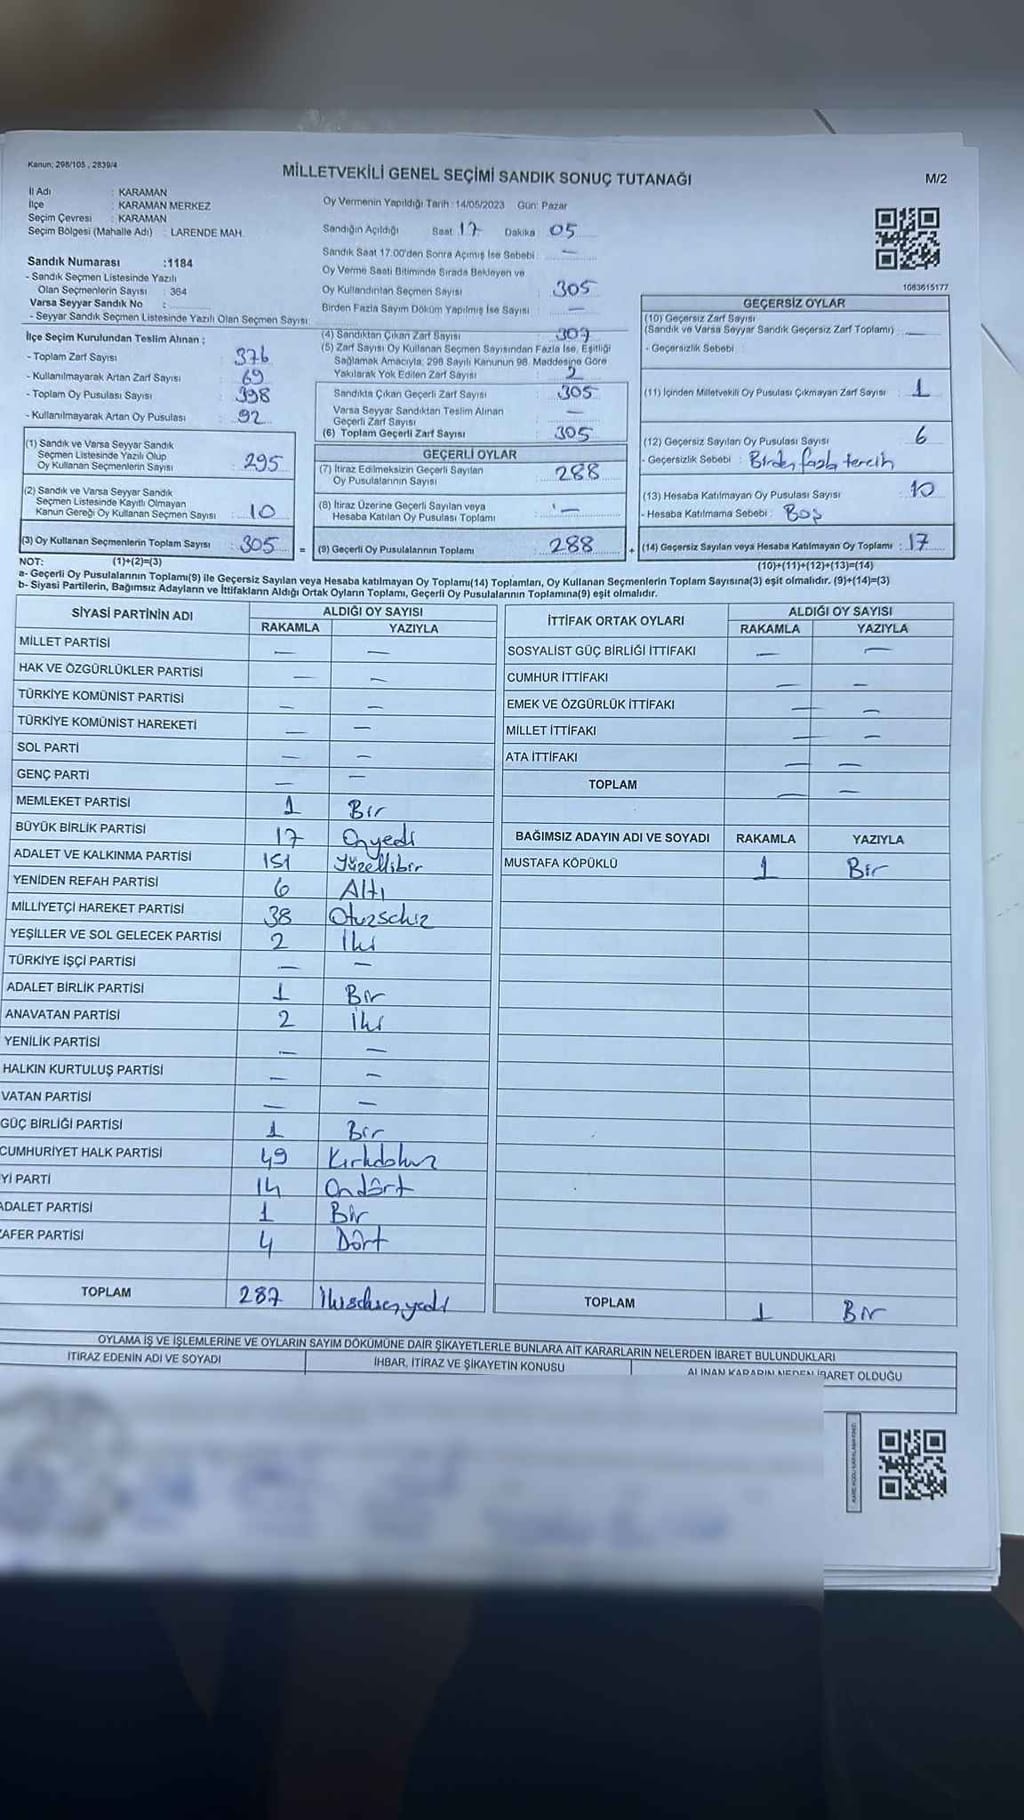 Kanun: 298/105 , 2839/4
MİLLETVEKİLİ GENEL SEÇİMİ SANDIK SONUÇ TUTANAĞI
M/2
İl Adı : KARAMAN
İlçe : KARAMAN MERKEZ
Seçim Çevresi : KARAMAN
Seçim Bölgesi (Mahalle Adı) : LARENDE MAH.
Sandık Numarası :1184
- Sandık Seçmen Listesinde Yazılı
Olan Seçmenlerin Sayısı : 364
Varsa Seyyar Sandık No :
- Seyyar Sandık Seçmen Listesinde Yazılı Olan Seçmen Sayısı:
İlçe Seçim Kurulundan Teslim Alınan ;
- Toplam Zarf Sayısı : 376
- Kullanılmayarak Artan Zarf Sayısı : 69
- Toplam Oy Pusulası Sayısı : 398
- Kullanılmayarak Artan Oy Pusulası : 92
(1) Sandık ve Varsa Seyyar Sandık
Seçmen Listesinde Yazılı Olup
Oy Kullanan Seçmenlerin Sayısı : 295
(2) Sandık ve Varsa Seyyar Sandık
Seçmen Listesinde Kayıtlı Olmayan
Kanun Gereği Oy Kullanan Seçmen Sayısı : 10
(3) Oy Kullanan Seçmenlerin Toplam Sayısı : 305 =
Oy Vermenin Yapıldığı Tarih :14/05/2023 Gün: Pazar
Sandığın Açıldığı Saat 17 Dakika 05
Sandık Saat 17.00'den Sonra Açılmış İse Sebebi : —
Oy Verme Saati Bitiminde Sırada Bekleyen ve
Oy Kullandırılan Seçmen Sayısı : 305
Birden Fazla Sayım Döküm Yapılmış İse Sayısı : —
(4) Sandıktan Çıkan Zarf Sayısı : 307
(5) Zarf Sayısı Oy Kullanan Seçmen Sayısından Fazla İse, Eşitliği
Sağlamak Amacıyla, 298 Sayılı Kanunun 98. Maddesine Göre
Yakılarak Yok Edilen Zarf Sayısı : 2
Sandıkta Çıkan Geçerli Zarf Sayısı : 305
Varsa Seyyar Sandıktan Teslim Alınan
Geçerli Zarf Sayısı : —
(6) Toplam Geçerli Zarf Sayısı : 305
GEÇERLİ OYLAR
(7) İtiraz Edilmeksizin Geçerli Sayılan
Oy Pusulalarının Sayısı : 288
(8) İtiraz Üzerine Geçerli Sayılan veya
Hesaba Katılan Oy Pusulası Toplamı : —
(9) Geçerli Oy Pusulalarının Toplamı : 288 +
1083615177
GEÇERSİZ OYLAR
(10) Geçersiz Zarf Sayısı
(Sandık ve Varsa Seyyar Sandık Geçersiz Zarf Toplamı) : —
- Geçersizlik Sebebi :
(11) İçinden Milletvekili Oy Pusulası Çıkmayan Zarf Sayısı : 1
(12) Geçersiz Sayılan Oy Pusulası Sayısı : 6
- Geçersizlik Sebebi : Birden fazla tercih
(13) Hesaba Katılmayan Oy Pusulası Sayısı : 10
- Hesaba Katılmama Sebebi : Boş
(14) Geçersiz Sayılan veya Hesaba Katılmayan Oy Toplamı : 17
NOT: (1)+(2)=(3)
(10)+(11)+(12)+(13)=(14)
a- Geçerli Oy Pusulalarının Toplamı(9) ile Geçersiz Sayılan veya Hesaba katılmayan Oy Toplamı(14) Toplamları, Oy Kullanan Seçmenlerin Toplam Sayısına(3) eşit olmalıdır. (9)+(14)=(3)
b- Siyasi Partilerin, Bağımsız Adayların ve İttifakların Aldığı Ortak Oyların Toplamı, Geçerli Oy Pusulalarının Toplamına(9) eşit olmalıdır.
SİYASİ PARTİNİN ADI ALDIĞI OY SAYISI
RAKAMLA YAZIYLA
MİLLET PARTİSİ — —
HAK VE ÖZGÜRLÜKLER PARTİSİ — —
TÜRKİYE KOMÜNİST PARTİSİ — —
TÜRKİYE KOMÜNİST HAREKETİ — —
SOL PARTİ — —
GENÇ PARTİ — —
MEMLEKET PARTİSİ 1 Bir
BÜYÜK BİRLİK PARTİSİ 17 Onyedi
ADALET VE KALKINMA PARTİSİ 151 Yüzellibir
YENİDEN REFAH PARTİSİ 6 Altı
MİLLİYETÇİ HAREKET PARTİSİ 38 Otuzsekiz
YEŞİLLER VE SOL GELECEK PARTİSİ 2 İki
TÜRKİYE İŞÇİ PARTİSİ — —
ADALET BİRLİK PARTİSİ 1 Bir
ANAVATAN PARTİSİ 2 İki
YENİLİK PARTİSİ — —
HALKIN KURTULUŞ PARTİSİ — —
VATAN PARTİSİ — —
GÜÇ BİRLİĞİ PARTİSİ 1 Bir
CUMHURİYET HALK PARTİSİ 49 Kırkdokuz
Yİ PARTİ 14 Ondört
ADALET PARTİSİ 1 Bir
ZAFER PARTİSİ 4 Dört
TOPLAM 287 İkiseksenyedi
İTTİFAK ORTAK OYLARI ALDIĞI OY SAYISI
RAKAMLA YAZIYLA
SOSYALİST GÜÇ BİRLİĞİ İTTİFAKI — —
CUMHUR İTTİFAKI — —
EMEK VE ÖZGÜRLÜK İTTİFAKI — —
MİLLET İTTİFAKI — —
ATA İTTİFAKI — —
TOPLAM — —
BAĞIMSIZ ADAYIN ADI VE SOYADI RAKAMLA YAZIYLA
MUSTAFA KÖPÜKLÜ 1 Bir
TOPLAM 1 Bir
OYLAMA İŞ VE İŞLEMLERİNE VE OYLARIN SAYIM DÖKÜMÜNE DAİR ŞİKAYETLERLE BUNLARA AİT KARARLARIN NELERDEN İBARET BULUNDUKLARI
İTİRAZ EDENİN ADI VE SOYADI İHBAR, İTİRAZ VE ŞİKAYETİN KONUSU ALINAN KARARIN NEDEN İBARET OLDUĞU